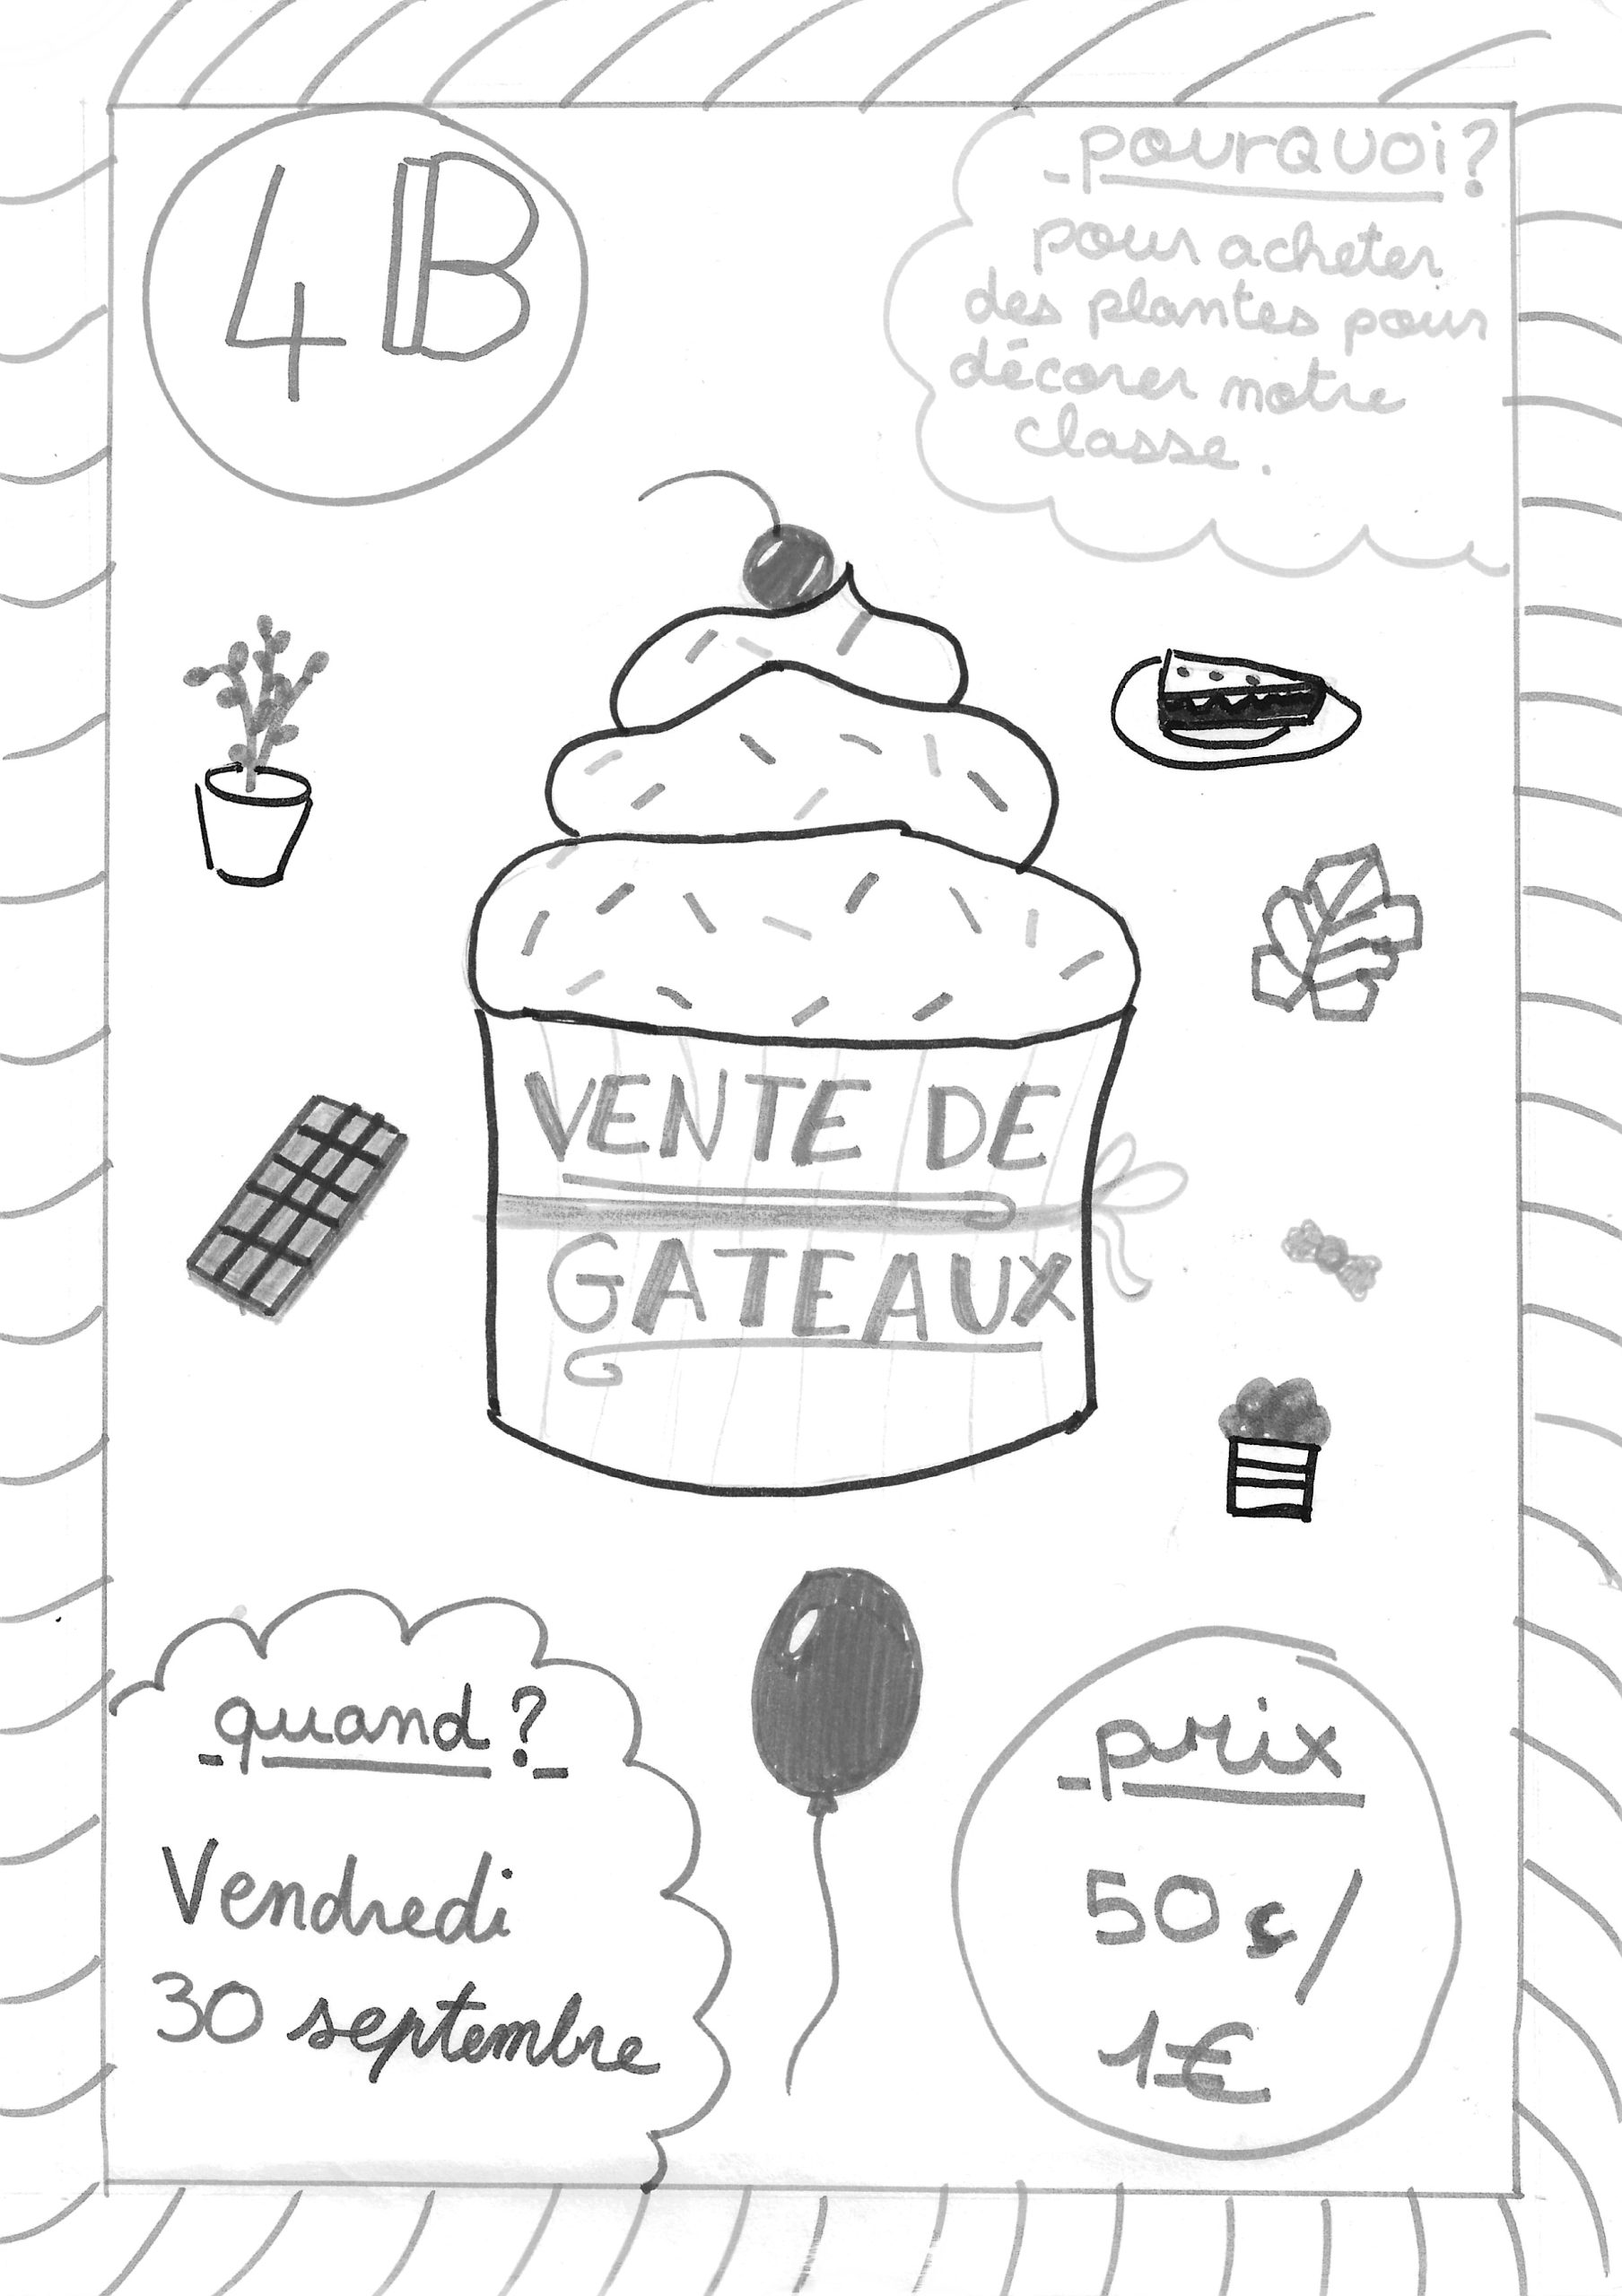 4B
pourQuoi?
pour acheter
des plantes pour
décorer notre
classe.
VENTE DE
GATEAUX
quand?
Vendredi
30 septembre
prix
50 c/
1€